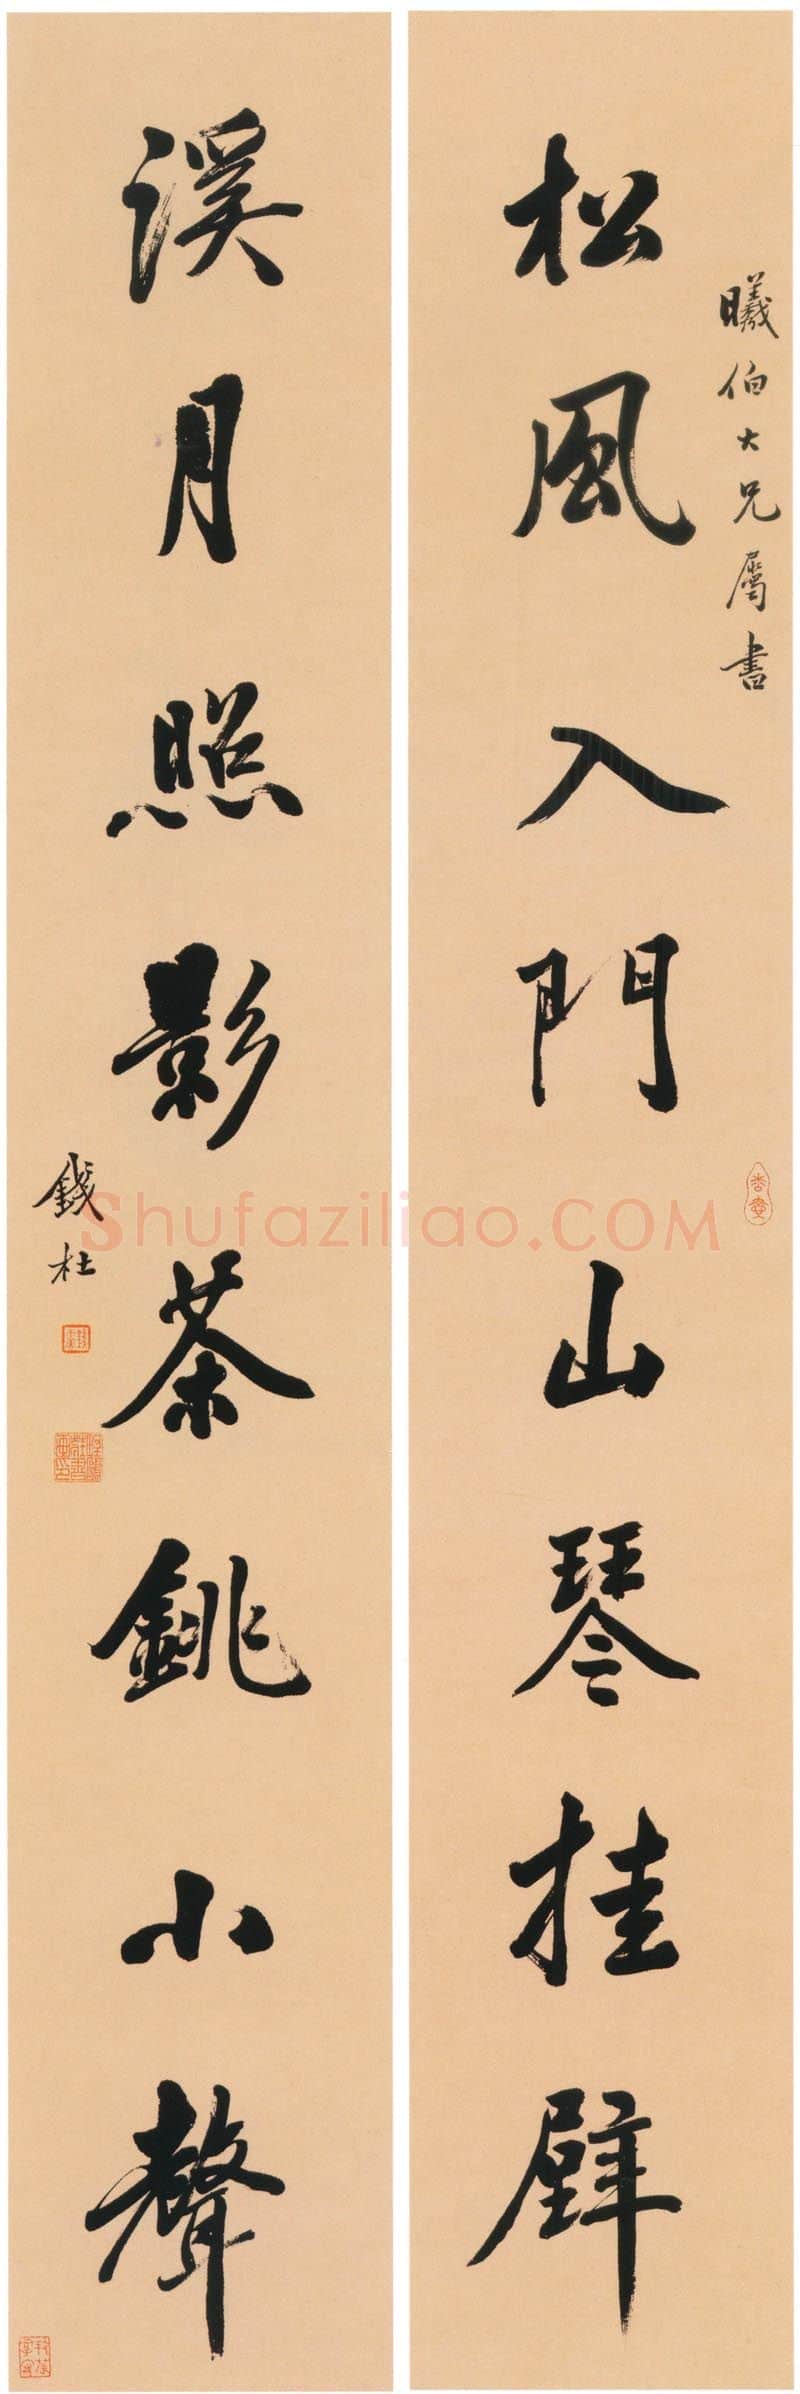 曦伯大兄屬書
松風入門山琴挂壁
溪月照影茶銚小聲
錢杜
Shufaziliao.COM